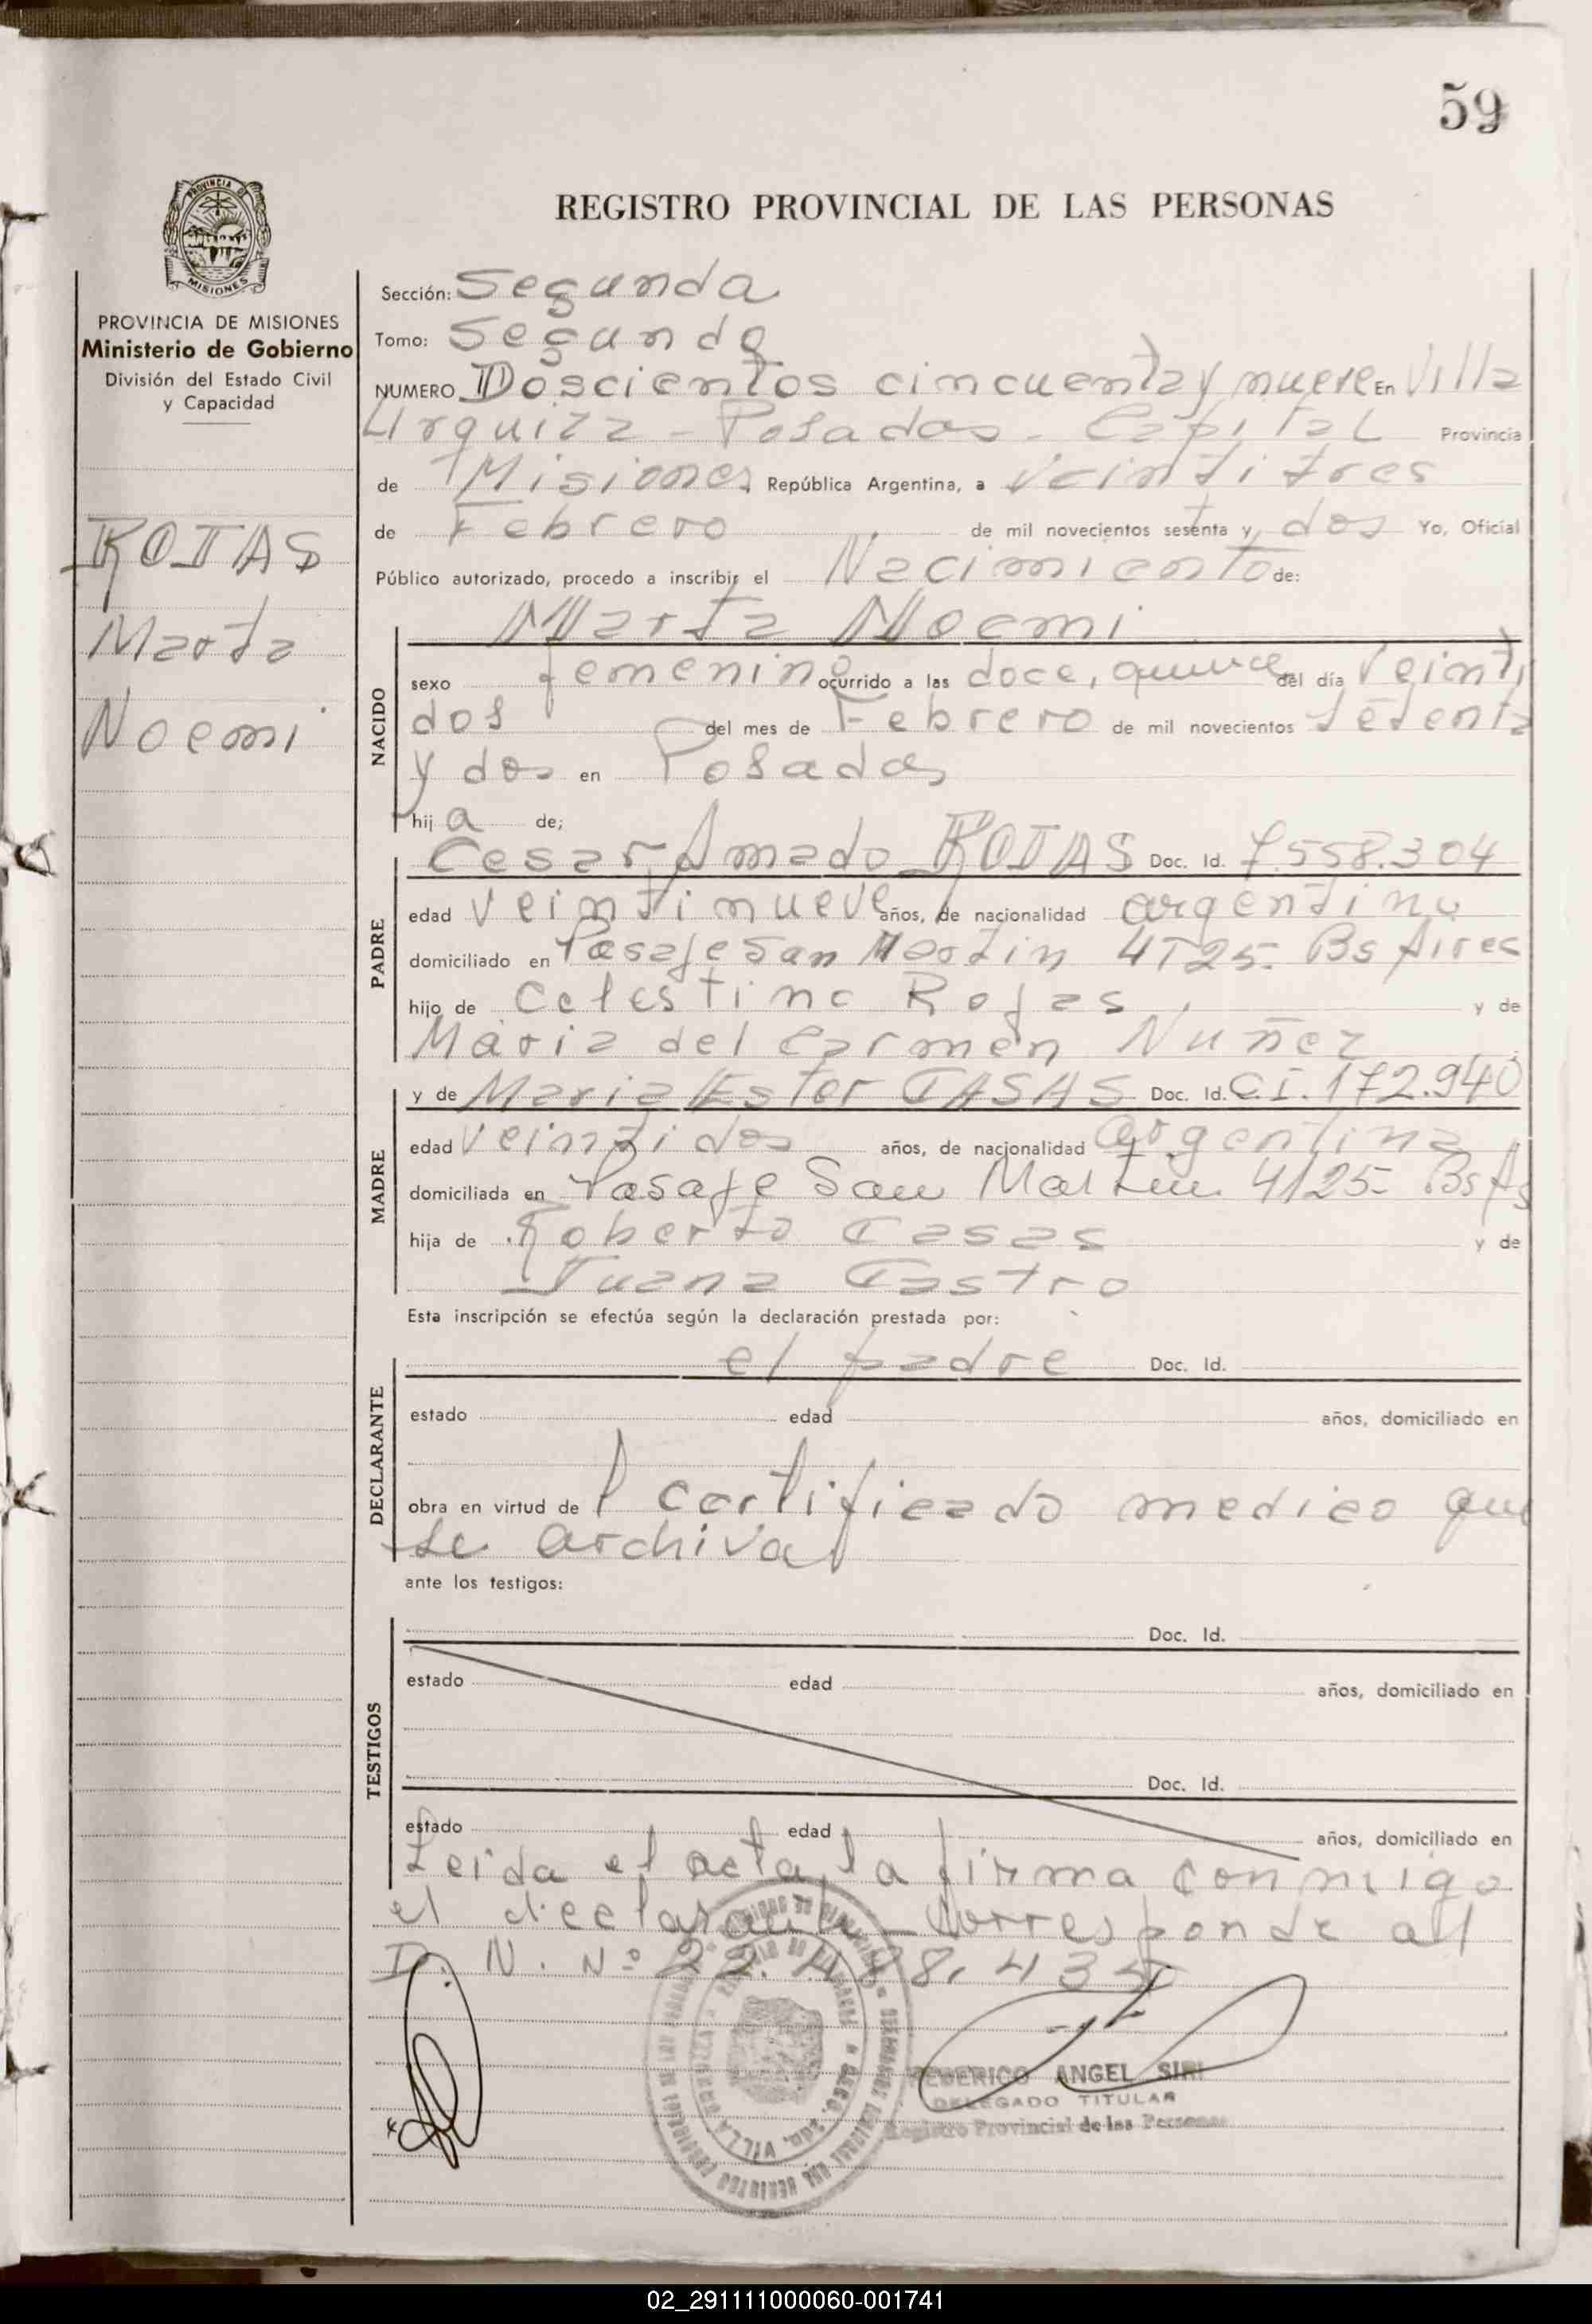 59
PROVINCIA DE
MISIONES
REGISTRO PROVINCIAL DE LAS PERSONAS
PROVINCIA DE MISIONES
Ministerio de Gobierno
División del Estado Civil
y Capacidad
ROJAS
Marta
Noemi
Sección: Segunda
Tomo: Segundo
NUMERO Doscientos cincuenta y nueve En Villa
Urquiza - Posadas - Capital Provincia
de Misiones República Argentina, a veintitres
de Febrero de mil novecientos sesenta y dos Yo, Oficial
Público autorizado, procedo a inscribir el Nacimiento de:
Marta Noemi
NACIDO
sexo femenino ocurrido a las doce, quince del día veinti
dos del mes de Febrero de mil novecientos setenta
y dos en Posadas
hij a de;
PADRE
Cesar Amado ROJAS Doc. Id. 7.558.304
edad veintinueve años, de nacionalidad argentina
domiciliado en Pasaje San Martin 4125- Bs Aires
hijo de Celestino Rojas y de
Maria del Carmen Nuñez
MADRE
y de Maria Ester CASAS Doc. Id. C.I. 172.940
edad veintidos años, de nacionalidad argentina
domiciliada en Pasaje San Martin 4125- Bs As
hija de Roberto Casas y de
Juana Castro
Esta inscripción se efectúa según la declaración prestada por:
DECLARANTE
el padre Doc. Id.
estado edad años, domiciliado en
obra en virtud de l certificado medico que
se archiva
ante los testigos:
TESTIGOS
Doc. Id.
estado edad años, domiciliado en
Doc. Id.
estado edad años, domiciliado en
Leida el acta, la firma conmigo
el declarante - Corresponde al
D. N. Nº 22.488.435
FEDERICO ANGEL SIRI
DELEGADO TITULAR
Registro Provincial de las Personas
02_291111000060-001741